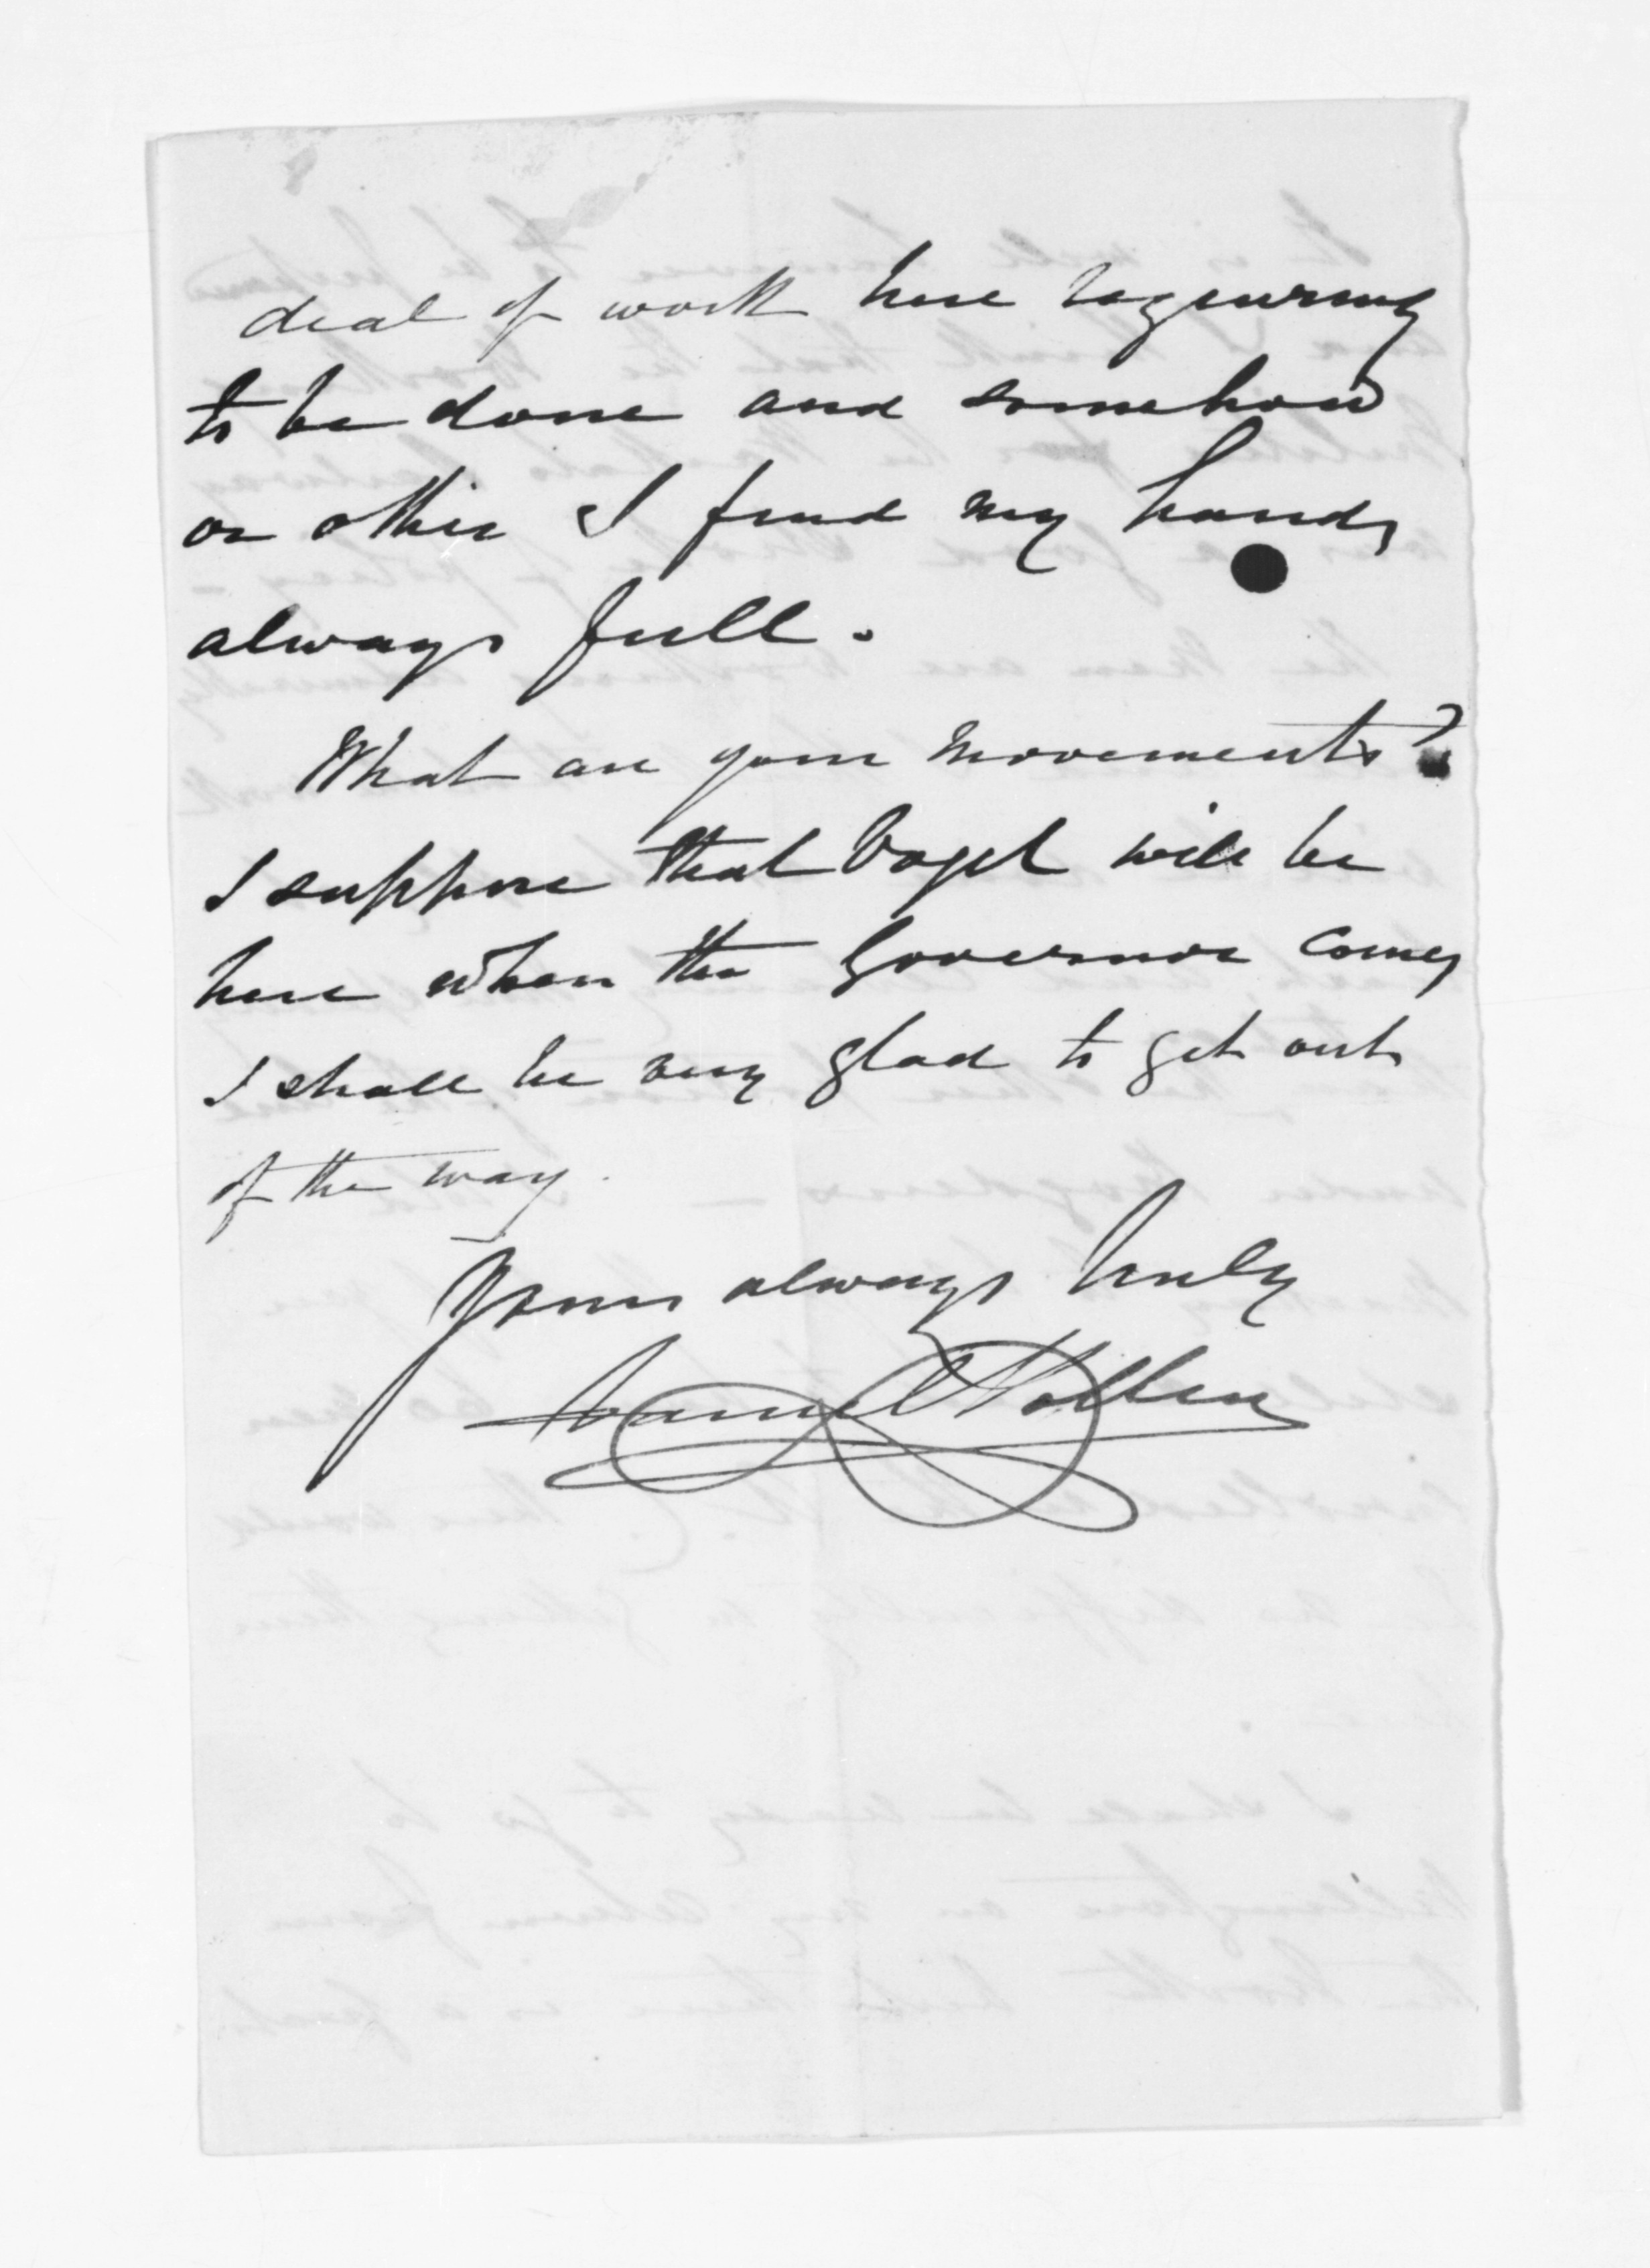 deal of work here requiring
to be done and somehow
or other I find my hands
always full.
What are your movements?
I suppose that Vogel will be
here when the Governor comes
I shall be very glad to get out
of the way.
Yours always truly
Daniel Pollen